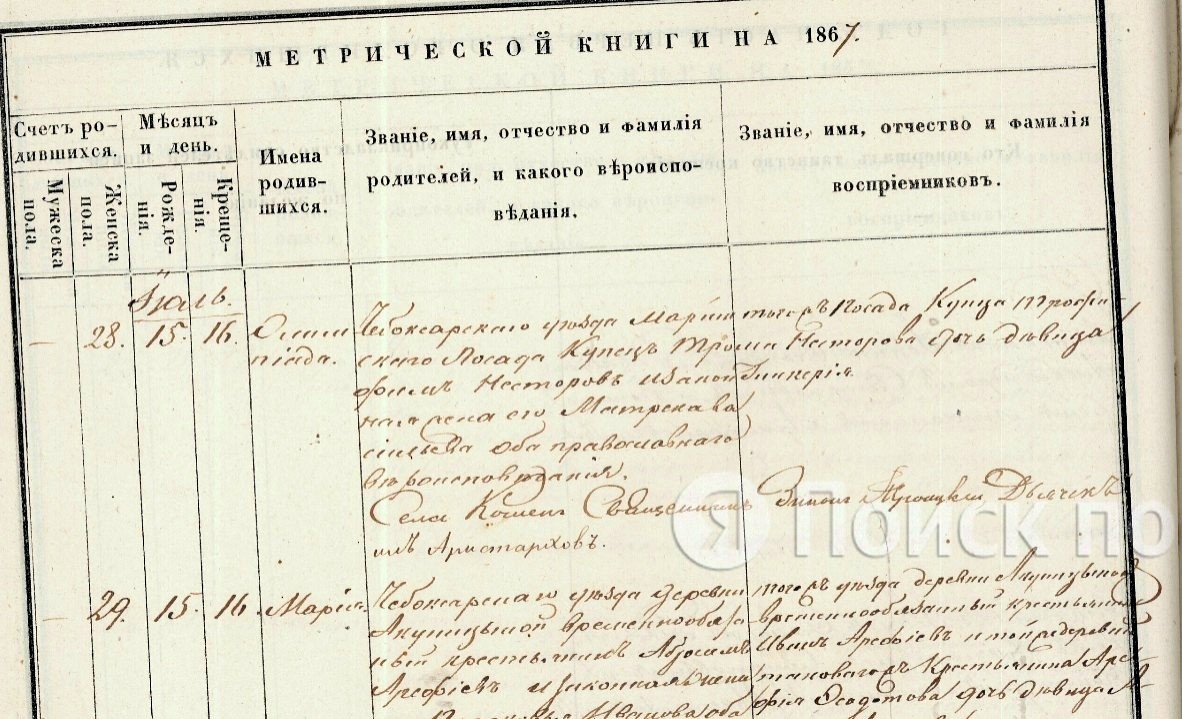 МЕТРИЧЕСКОЙ КНИГИ НА 1867.
Счетъ ро-
дившихся.
Мужеска
пола.
Женска
пола.
Мѣсяцъ
и день.
Рожде-
нія.
Креще-
нія.
Имена
родив-
шихся.
Званіе, имя, отчество и фамилія
родителей, и какого вѣроиспо-
вѣданія.
Званіе, имя, отчество и фамилія
воспріемниковъ.
Іюль.
28. 15. 16. Олим
піада.
Чебоксарскаго уѣзда Маріин
скаго Посада Купецъ Тро
фимъ Несторовъ и закон
ная жена его Матрена Ва
сильева оба православнаго
вѣроисповѣданія.
тогожъ Посада Купца Трофи
ма Несторова дочь дѣвица
Гликерія
Села Священникъ Троицкій Дьячекъ
Аристарховъ.
29. 15. 16. Марія.
Чебоксарскаго уѣзда деревни
временнообяза
ный крестьянинъ
Арефіевъ и законная жена
Ивановa оба
тогожъ уѣзда деревни
временнообязанный крестьянинъ
Иванъ Арефіевъ и той же деревни
таковагожъ Крестьянина Аре
фія Ѳедотова дочь дѣвица
Я Поиск по